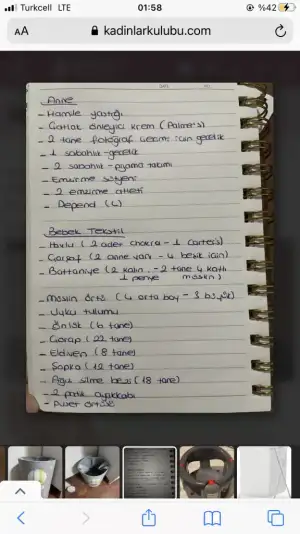 Turkcell LTE
01:58
%42
AA
kadinlarkulubu.com
Anne
- Hamile yastığı
- Çatlak önleyici krem (Palmer's)
- 2 tane fotoğraf çekimi için gecelik
- 1 sabahlık-gecelik
- 2 sabahlık-pijama takımı
- Emzirme sütyeni
- 2 emzirme atleti
- Depend (L)
Bebek Tekstil
- Havlu ( 2 adet chakra - 1 carter's)
- Çarşaf ( 2 anne yanı - 4 beşik için)
- Battaniye ( 2 kalın - 2 tane 4 katlı
1 penye müslin)
- Müslin örtü ( 4 orta boy - 3 büyük)
- Uyku tulumu
- Önlük (6 tane)
- Çorap ( 22 tane)
- Eldiven ( 8 tane)
- Şapka ( 12 tane)
- Ağız silme bezi ( 18 tane)
- 2 patik ayakkabı
- örtüsü